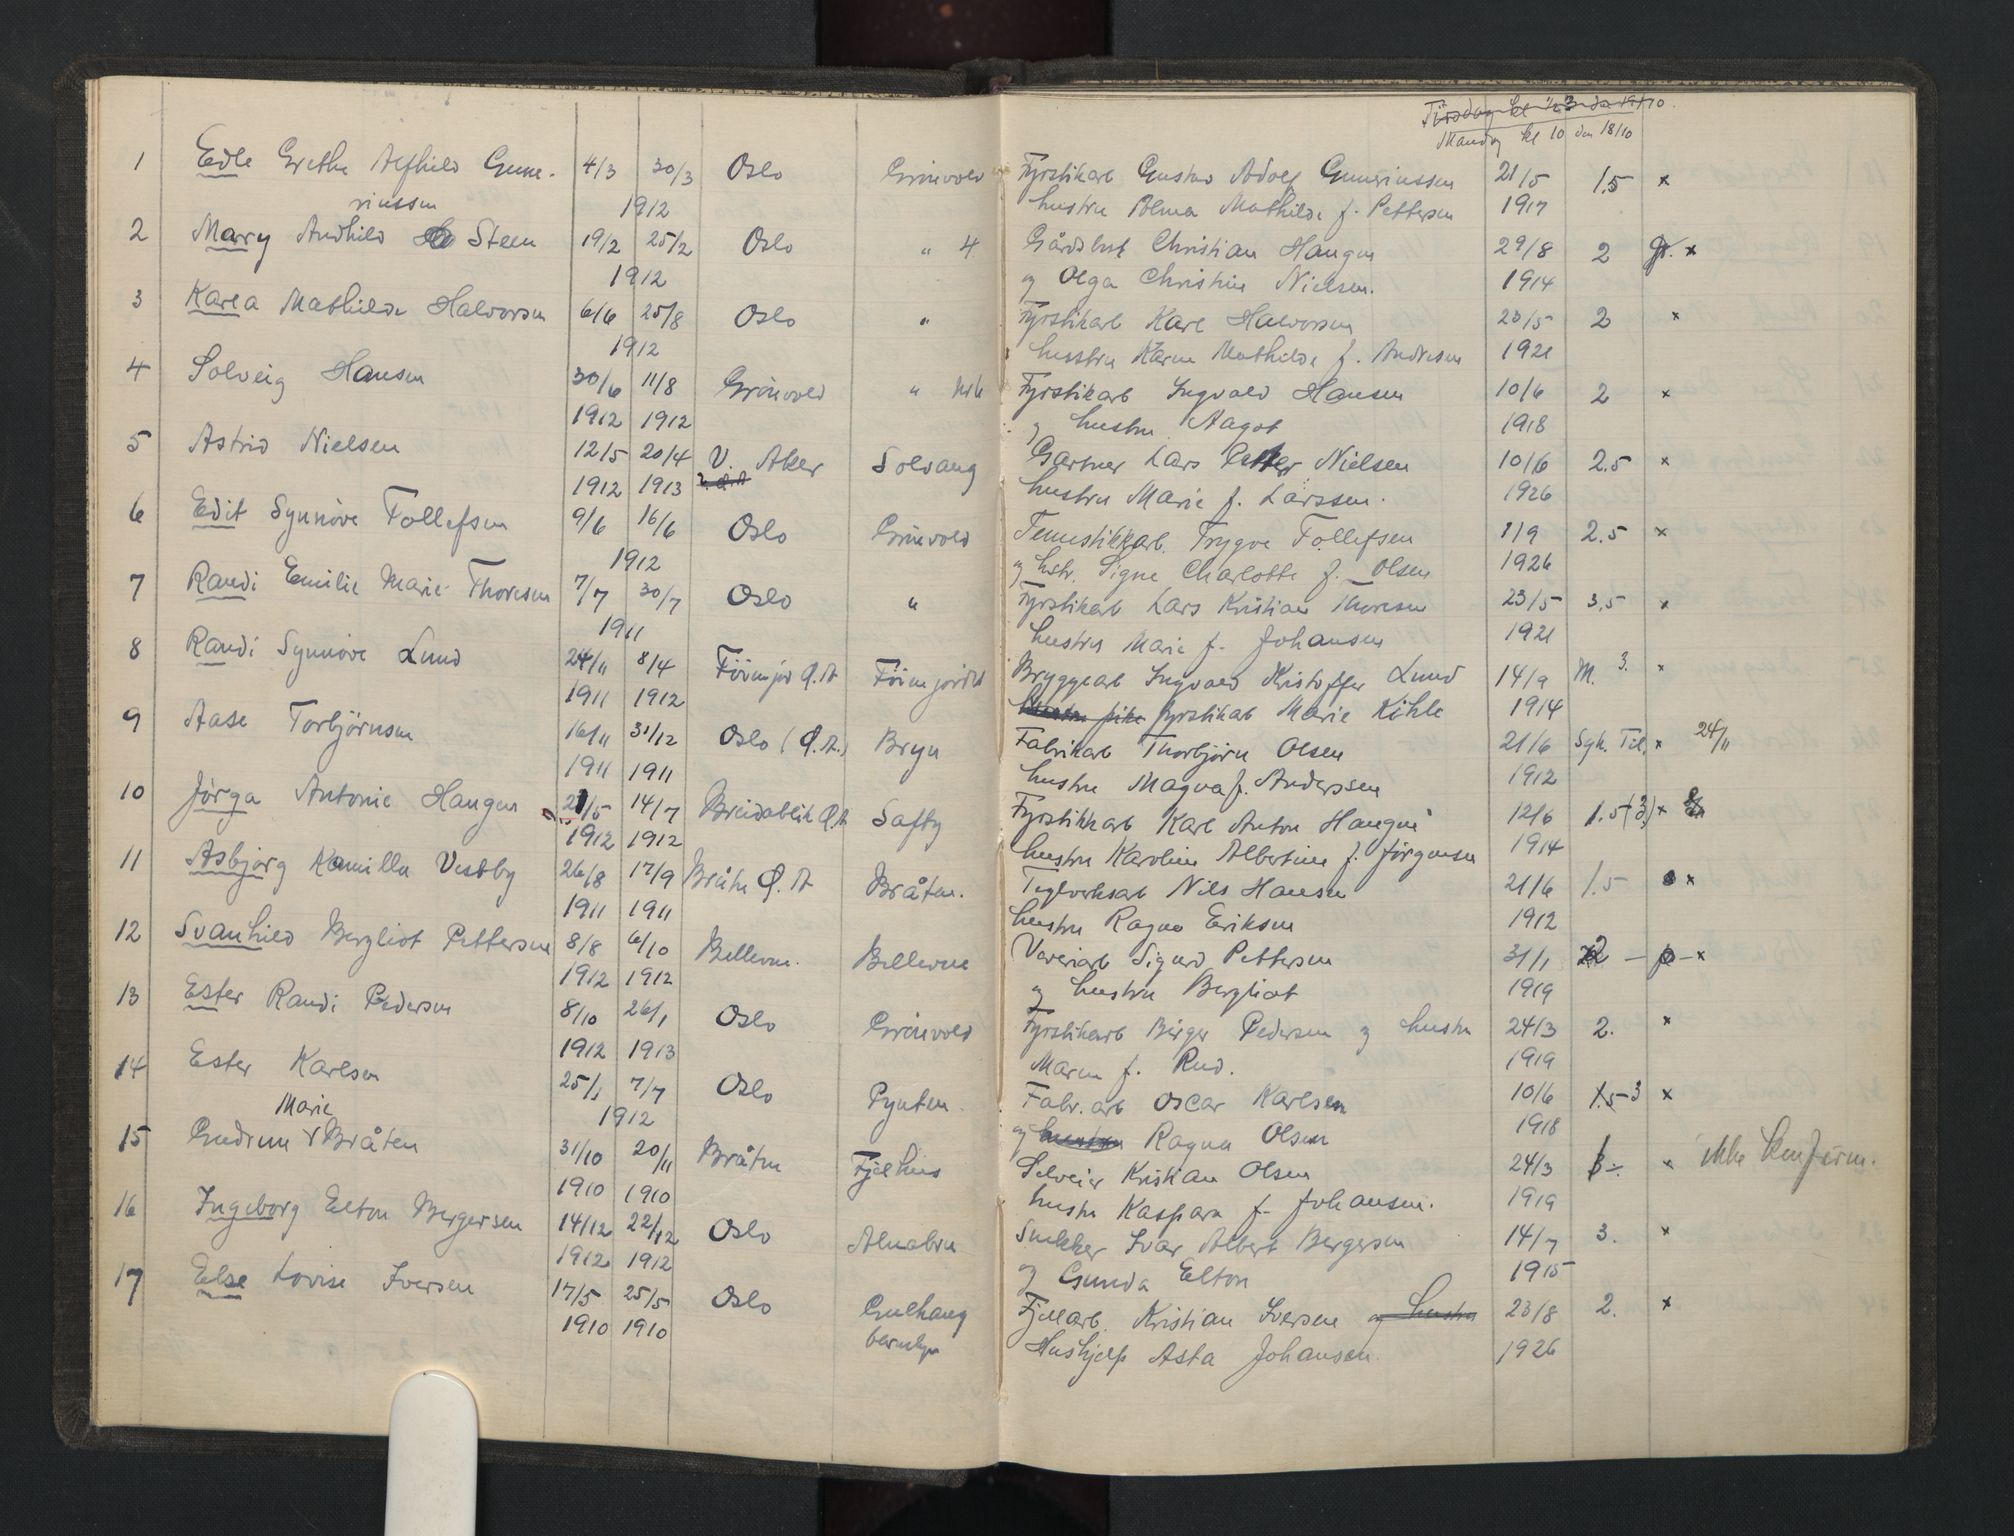 Mandag kl 10 den 18/10
1 Edle Grethe Alfhild Gune- 4/3 30/3 Oslo Grönvold Fyrstikarb Gustav Adolf Guneriussen 21/5 1.5 x
riussen 1912 hustru Mathilde f. Pettersen 1917
2 Mary Andhild Steen 19/2 25/2 Oslo " 4 Gårdsbest Christian Haugen 29/8 2 x
1912 og Olga Christine Nielsen. 1914
3 Karla Mathilde Halvorsen 6/6 25/8 Oslo " Fyrstikarb Karl Halvorsen 23/5 2 x
1912 hustru Karen Mathilde f. Andresen 1921
4 Solveig Hansen 30/6 11/8 Grönvold " Fyrstikarb Ingvald Hansen 10/6 2 x
1912 1912 og hustru Aagot 1918
5 Astrid Nielsen 12/5 20/4 V. Aker Solvang Gartner Lars Petter Nielsen 10/6 2.5 x
1912 1913 hustru Marie f. Larssen. 1926
6 Edit Synnöve Tollefsen 9/6 16/6 Oslo Grönvold Trygve Tollefsen 1/9 2.5 x
1912 og hstr. Signe Charlotte f. Olsen 1926
7 Randi Emilie Marie Thoresen 7/7 30/7 Oslo " Fyrstikarb Lars Kristian Thoresen 23/5 3.5 x
1911 hustru Marie f. Johansen 1921
8 Randi Synnöve Lund 24/11 8/4 Ö.A Bryggearb Ingvald Kristoffer Lund 14/9 M. 3. x
1911 1912 fyrstikarb Marie Kihle 1914
9 Aase Torbjörnsen 16/11 31/12 Oslo (Ö.A.) Bryn Fabrikarb Thorbjörn Olsen 21/6 x 24/11
1911 1911 hustru Magna f. Anderssen 1912
10 Jörga Antonie Haugen 21/5 14/7 Breidablik Ö.A Fyrstikkarb Karl Anton Haugen 12/6 1.5 (3) x
1912 1912 hustru Karoline Albertine f. Jörgensen 1914
11 Asbjörg Kamilla Vestby 26/8 17/9 Bråten Ö.A Bråten. Teglverksarb Nils Hansen 21/6 1.5 x
1911 1911 hustru Ragna Eriksen 1912
12 Svanhild Bergliot Pettersen 8/8 6/10 Bellevue. Bellevue Sigurd Pettersen 31/1 2 x
1912 1912 og hustru Bergliot 1919
13 Ester Randi Pedersen 8/10 26/1 Oslo Grönvold Fyrstikarb Birger Pedersen og hustru 24/3 2. x
1912 1913 Maren f. Rud. 1919
14 Ester Karlsen 25/1 7/7 Oslo Pynten Fabr.arb Oscar Karlsen 10/6 1.5-3 x
1912 og Ragna Olsen 1918
Marie
15 Gudrun Bråten 31/10 20/11 Bråten Fjelhus Selveier Kristian Olsen 24/3 x ikke konfirm.
1910 1910 hustru Kaspara f. Johansen. 1919
16 Ingeborg Elton Bergersen 14/12 22/12 Oslo Alnabru Snekker Ivar Albert Bergersen 14/7 3. x
1912 1912 og Gunda Elton 1915
17 Else Lovise Iversen 17/5 25/5 Oslo Gulhaug Fjellarb. Kristian Iversen og hustru 23/8 2. x
1910 1910 Hushjelp Asta Johansen. 1926